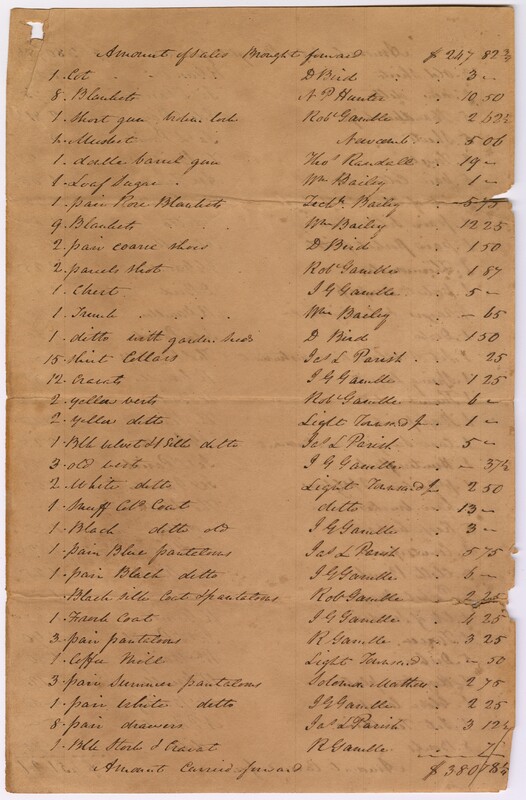 Amount of sales Brought forward $ 247 82½
1. Cot D Bird 3 –
8. Blankets N P Hunter 10 50
1. Short gun broken lock Robt Gamble 2 62½
1. Musket Newcomb 5 06
1. double barrel gun Thos Randall 19 –
1. Loaf Sugar Wm Bailey 1 –
1. pair Rose Blankets Zachh Bailey 5 75
9. Blankets Wm Bailey 12 25
2. pair coarse shoes D Bird 1 50
2. parcels shot Robt Gamble 1 87
1. Chest J G Gamble 5 –
1. Trunk Wm Bailey – 65
1. ditto with garden seeds D Bird 1 50
15. Shirt Collars Jas L Parish 25
12. Cravats J G Gamble 1 25
2. yellow vests Robt Gamble 6 –
2. yellow ditto Light Townsd Jr 1 –
1. Blk velvet & Silk ditto Jas L Parish 5 –
3. old vests J G Gamble – 37½
2. White ditto Light Townsd Jr 2 50
1. Snuff Cold Coat ditto 13 –
1. Black ditto old J G Gamble 3 –
1. pair Blue pantaloons Jas L Parish 5 75
1. pair Black ditto J G Gamble 5 –
Black silk Coat & pantaloons Robt Gamble 2
1. French Coat J G Gamble 4 25
3. pair pantaloons R Gamble 3 25
1. Coffee Mill Light Townsd – 50
3. pair Summer pantaloons Solomon Mathews 2 75
1. pair White ditto J G Gamble 2 25
8. pair drawers Jas L Parish 3 12½
1. Blk Stock & Cravat R Gamble
Amount Carried forward $ 380 18¼